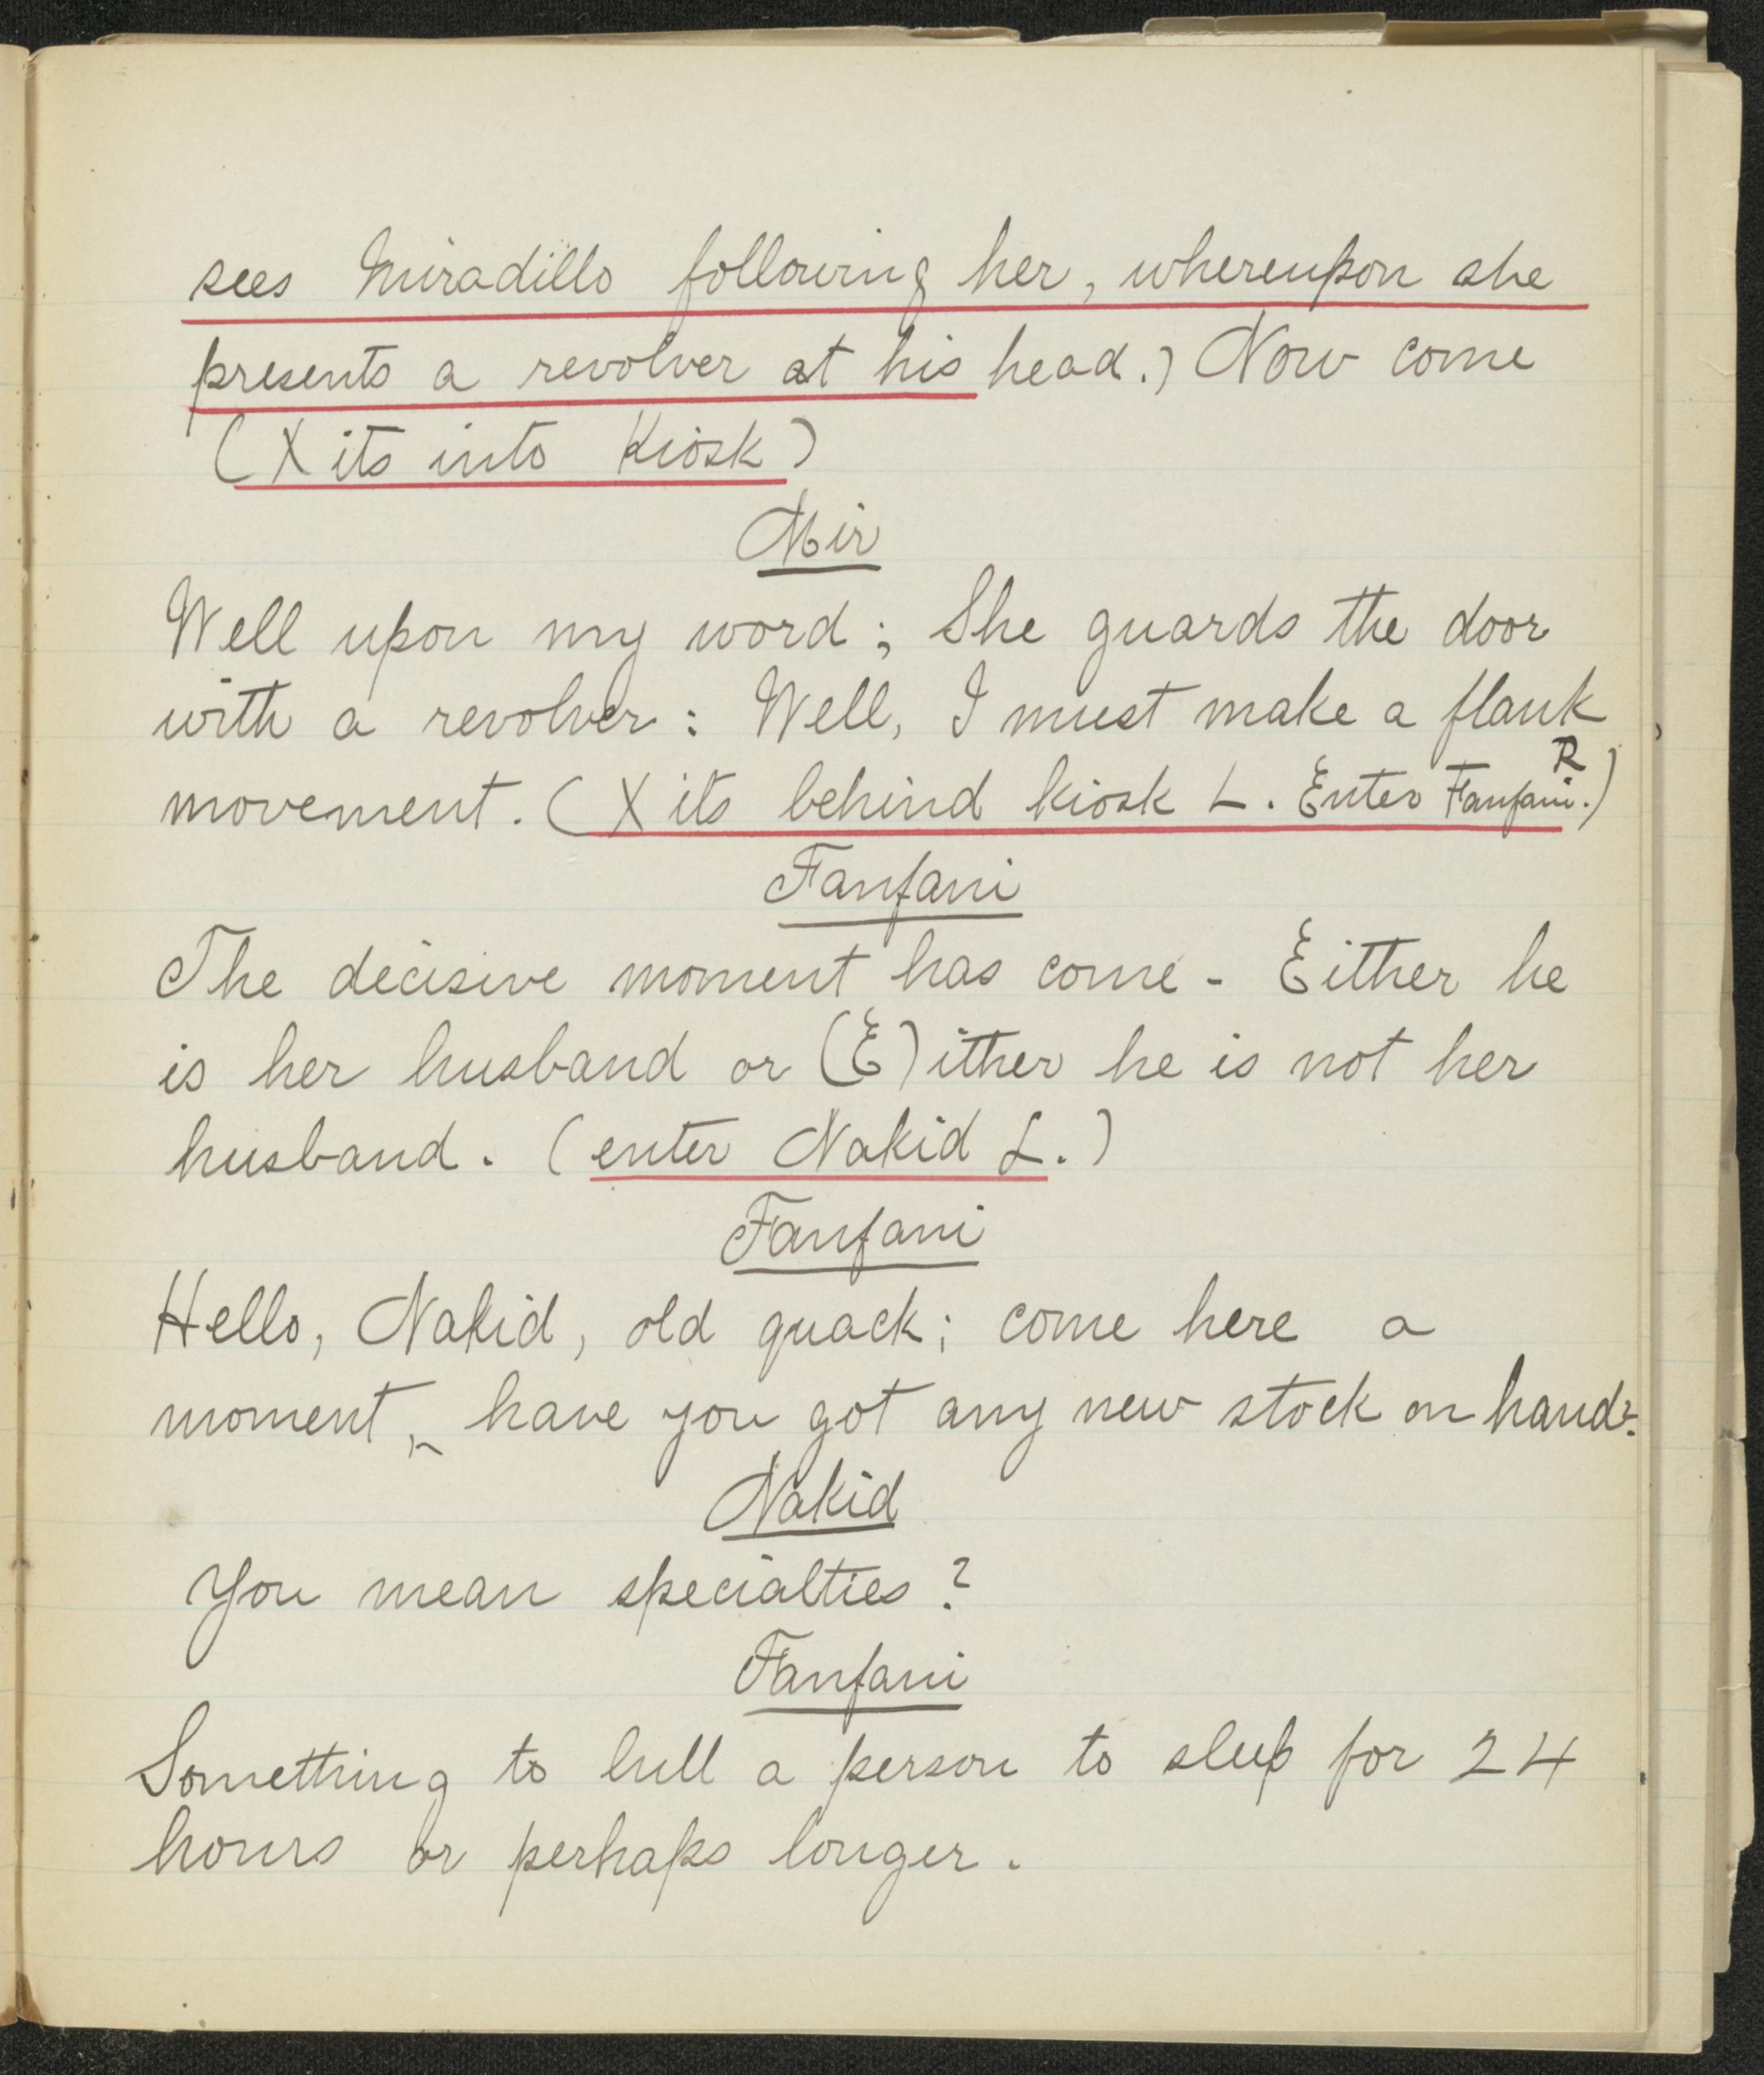 sees Miradillo following her, whereupon she
presents a revolver at his head.) Now come
(Xits into Kiosk)
Mir
Well upon my word; She guards the door
with a revolver: Well, I must make a flank
movement. (Xits behind kiosk L. Enter Fanfani R.)
Fanfani
The decisive moment has come - Either he
is her husband or (E)ither he is not her
husband. (enter Nakid L.)
Fanfani
Hello, Nakid, old quack; come here a
moment, have you got any new stock on hand?
Nakid
You mean specialties?
Fanfani
Something to lull a person to sleep for 24
hours or perhaps longer.